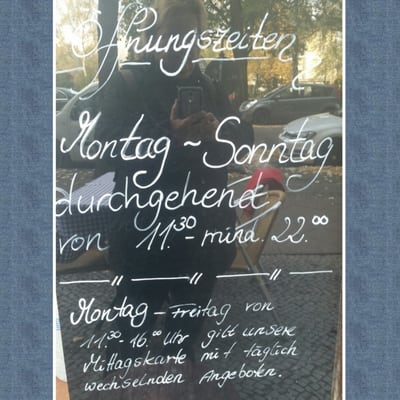 Öffnungszeiten
Montag ~ Sonntag
durchgehend
von 11.30 - mind. 22.00
Montag - Freitag von
11.30 - 16.00 Uhr gibt unsere
Mittagskarte mit täglich
wechselnden Angeboten.